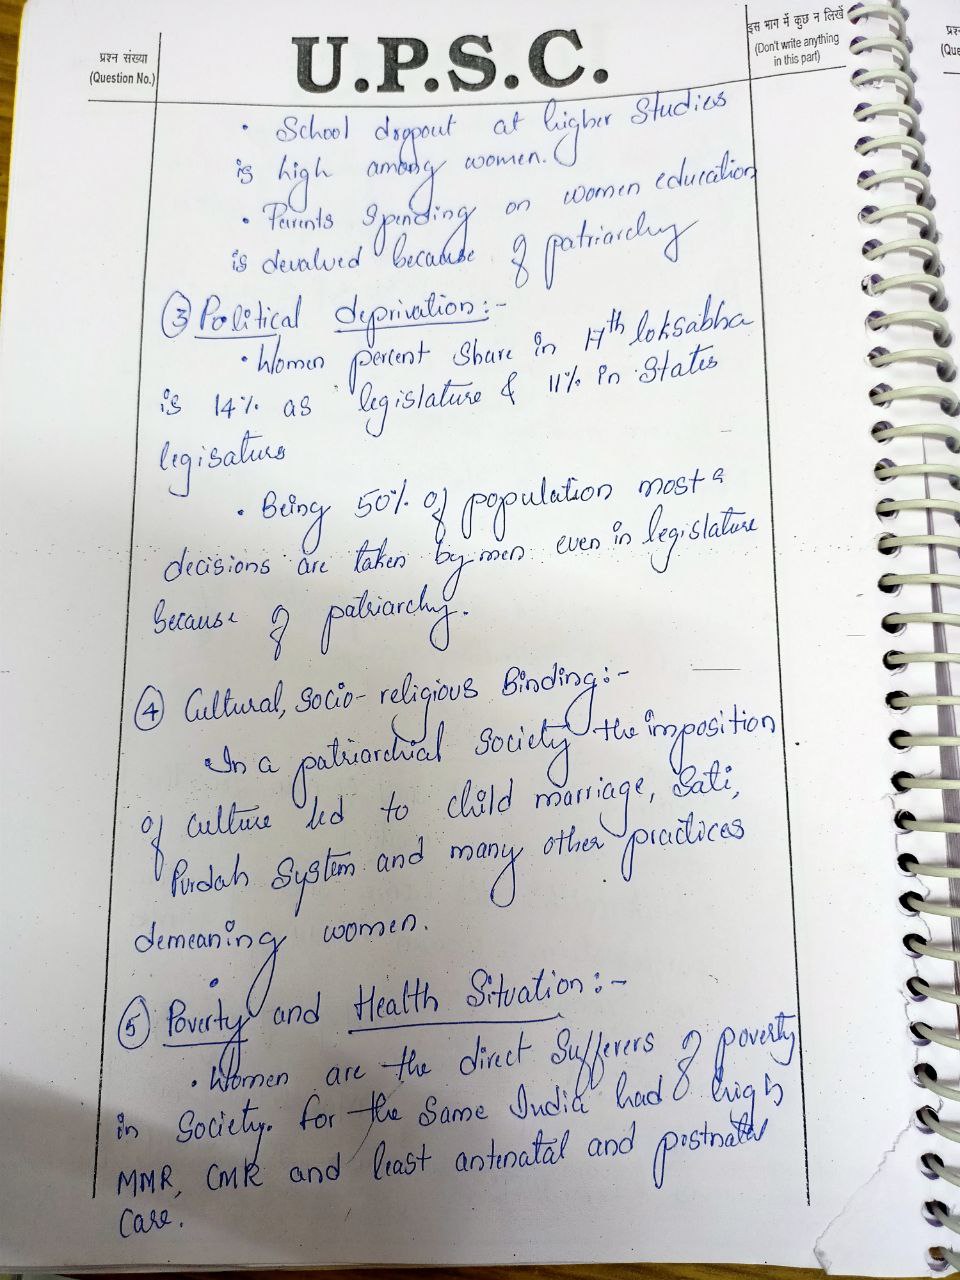 प्रश्न संख्या
(Question No.)
U.P.S.C.
इस भाग में कुछ न लिखें
(Don't write anything
in this part)
• School dropout at higher Studies
is high among women.
• Parents Spending on women education
is devalued because of patriarchy
③ Political deprivation:-
• Women percent Share in 17th loksabha
is 14% as legislature & 11% in States
legisature
• Being 50% of population most
decisions are taken by men even in legislature
because of patriarchy.
④ Cultural, Socio-religious Binding:-
• In a patriarchial Society the imposition
of culture led to child marriage, Sati,
Purdah System and many other practices
demeaning women.
⑤ Poverty and Health Situation:-
• Women are the direct Sufferers of poverty
in Society. for the Same India had high
MMR, CMR and least antenatal and postnatal
Care.